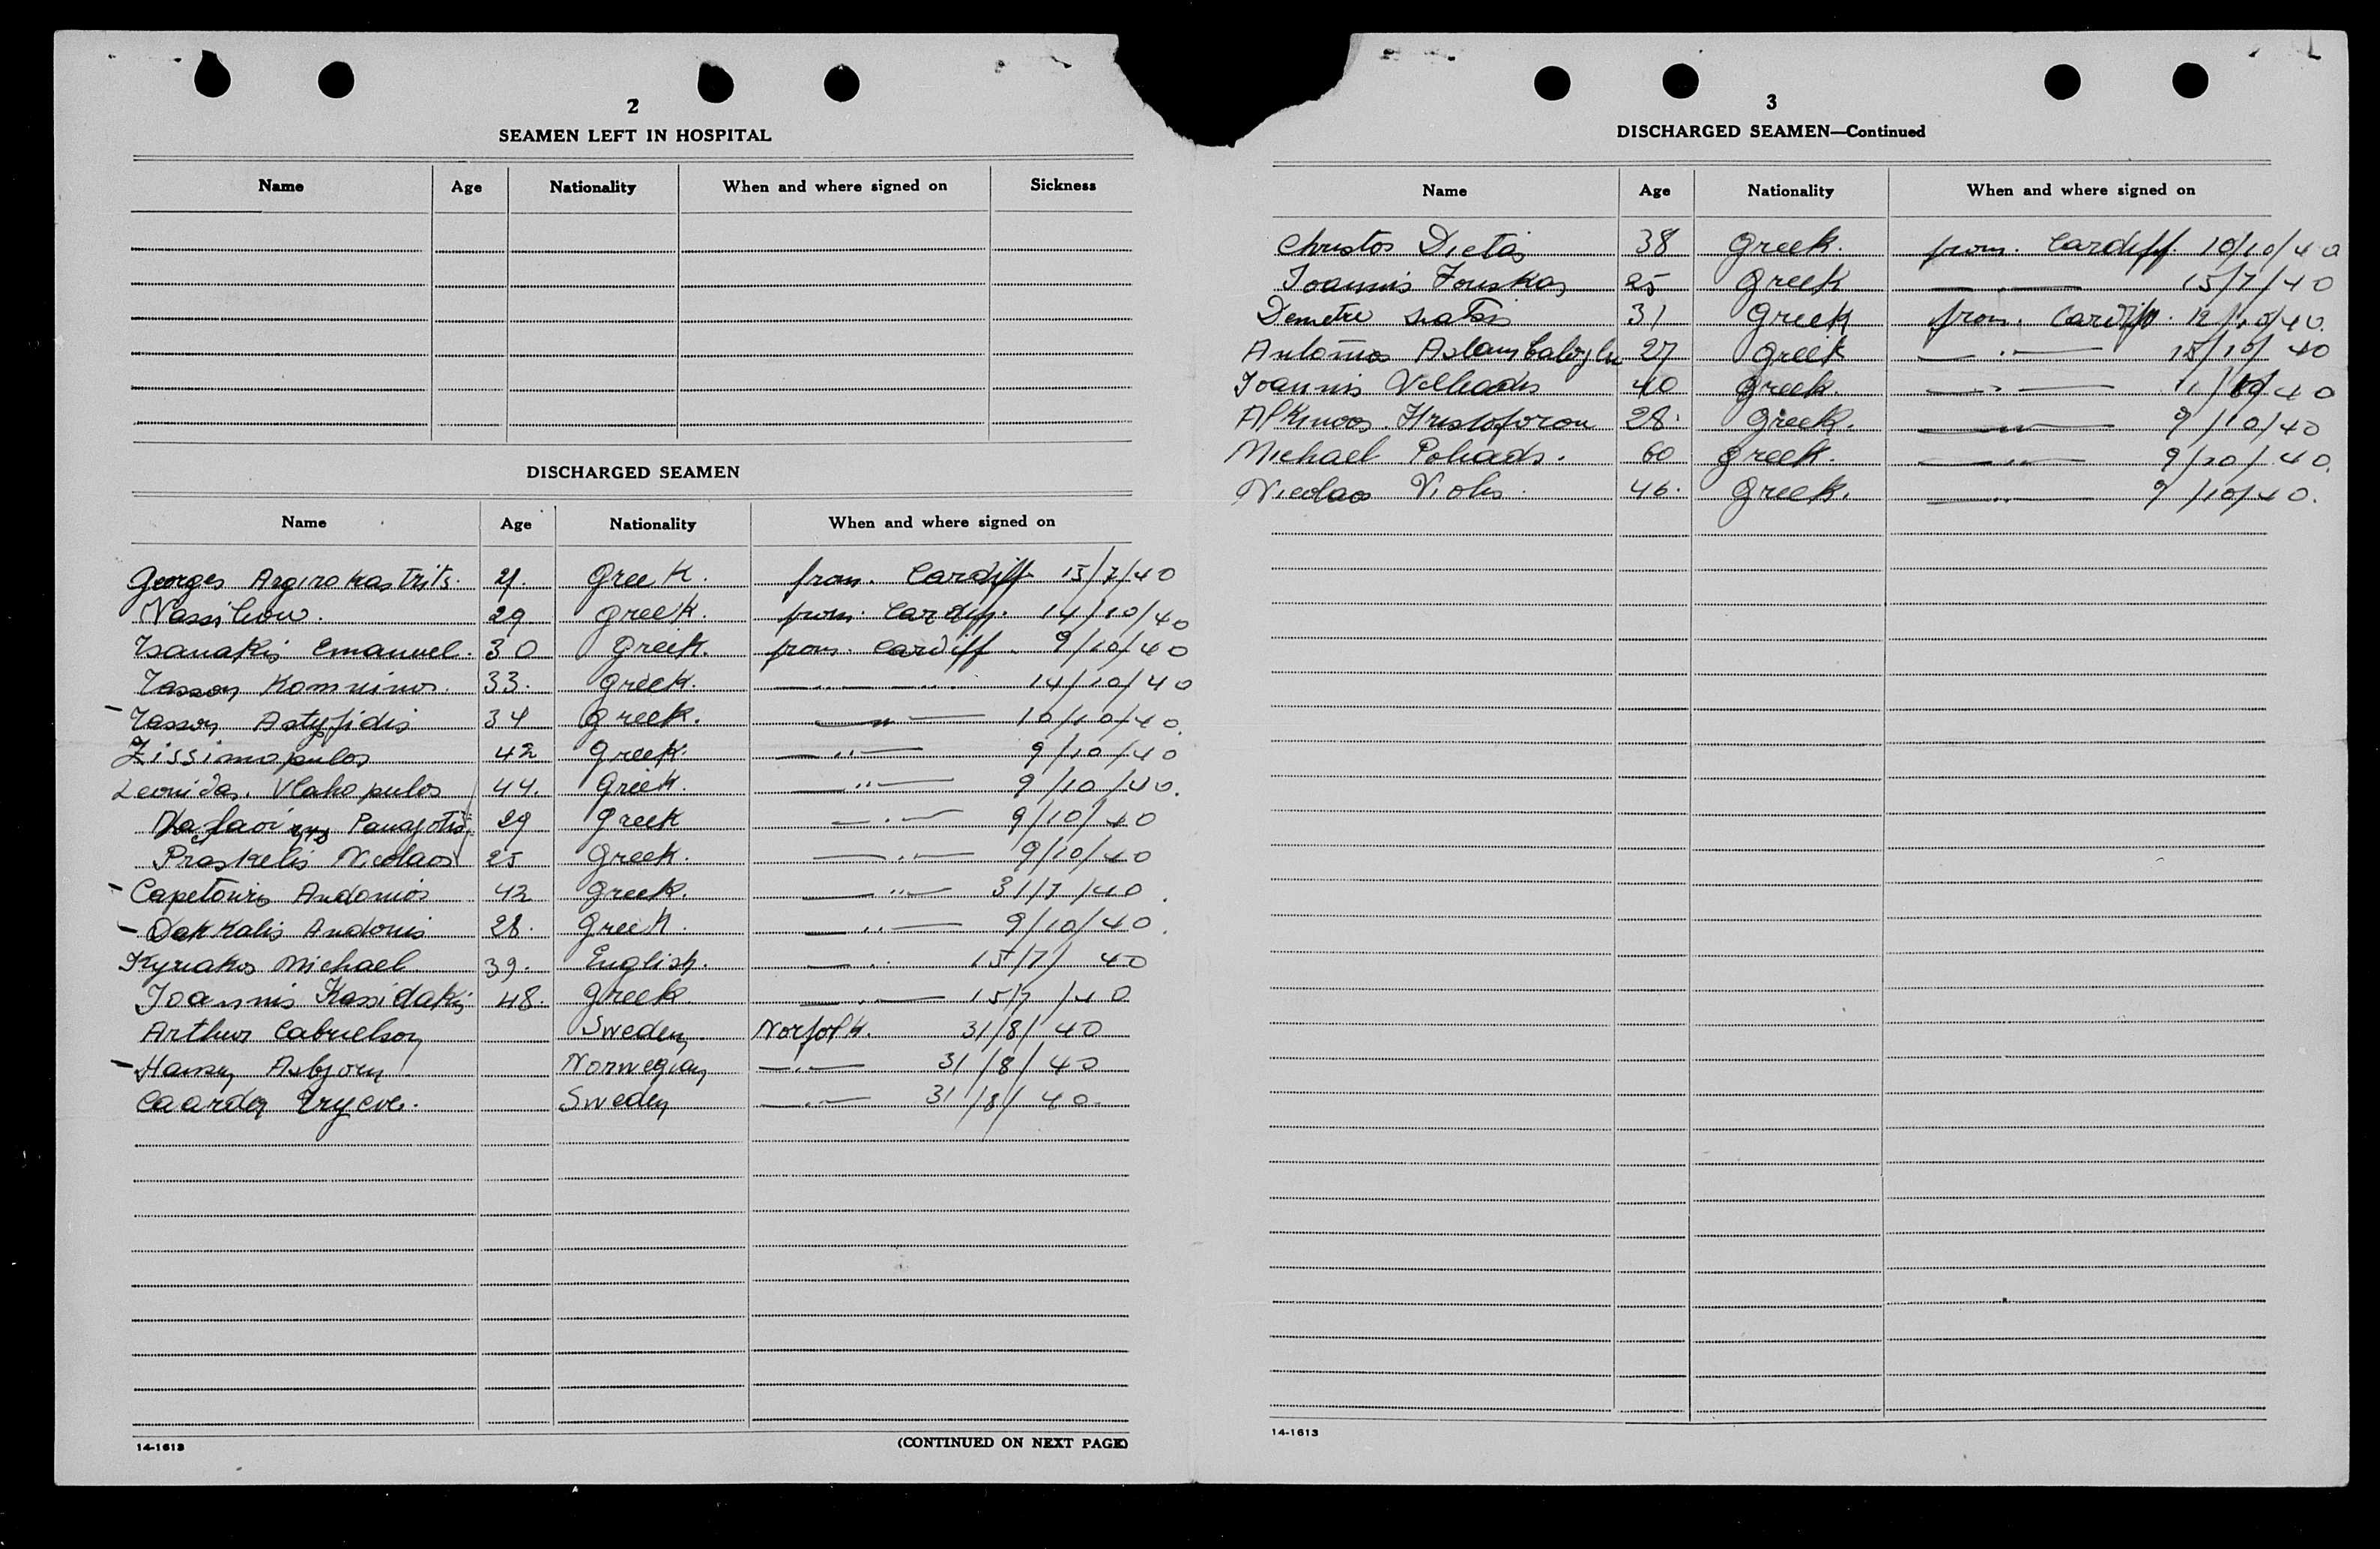 2
SEAMEN LEFT IN HOSPITAL
Name Age Nationality When and where signed on Sickness
DISCHARGED SEAMEN
Name Age Nationality When and where signed on
Georges Argirokastrits. 21. Greek. from. Cardiff 15/7/40
Vassiliou. 29 Greek. from. Cardiff. 14/10/40
Tsanakis Emanuel. 30 Greek. from. Cardiff. 9/10/40
Komninos. 33. Greek. —..— .. 14/10/40
Astyfidis 34 Greek. —"— 10/10/40.
Zissimopulos 42 Greek. —..— 9/10/40
Leonidas. Vlahopulos 44. Greek. —"— 9/10/40.
Panagotis 29 Greek —.— 9/10/40
Praskelis Nicolaos 25 Greek. —.— 9/10/40
Capetanis Andonios 42 Greek. —"— 31/7/40.
Dakkalis Andonis 28. Greek. —..— 9/10/40.
Kyriakos Michael 39. English. —.. 15/7/40
Joannis Kassidakis 48. Greek. —.— 15/7/40
Arthur Sweden Norfolk. 31/8/40
Hansen Asbjorn Norwegian —.— 31/8/40
Trygve. Sweden —.— 31/8/40.
14-1613 (CONTINUED ON NEXT PAGE)
3
DISCHARGED SEAMEN—Continued
Name Age Nationality When and where signed on
Christos Dietas 38 Greek. from. Cardiff. 10/10/40
Joannis Fouskas 25 Greek —.— 15/7/40
Demetre 31 Greek from. Cardiff. 12/10/40.
Antonios Aslambaloglu 27 Greek —..— 15/10/40
Joannis 40 Greek. —..— /40
Alkinoos. Hristoforou 28. Greek. —..— 9/10/40
Michael Poliads. 60 Greek. —..— 9/10/40.
Nicolaos Violis. 46. Greek. —..— 9/10/40.
14-1613